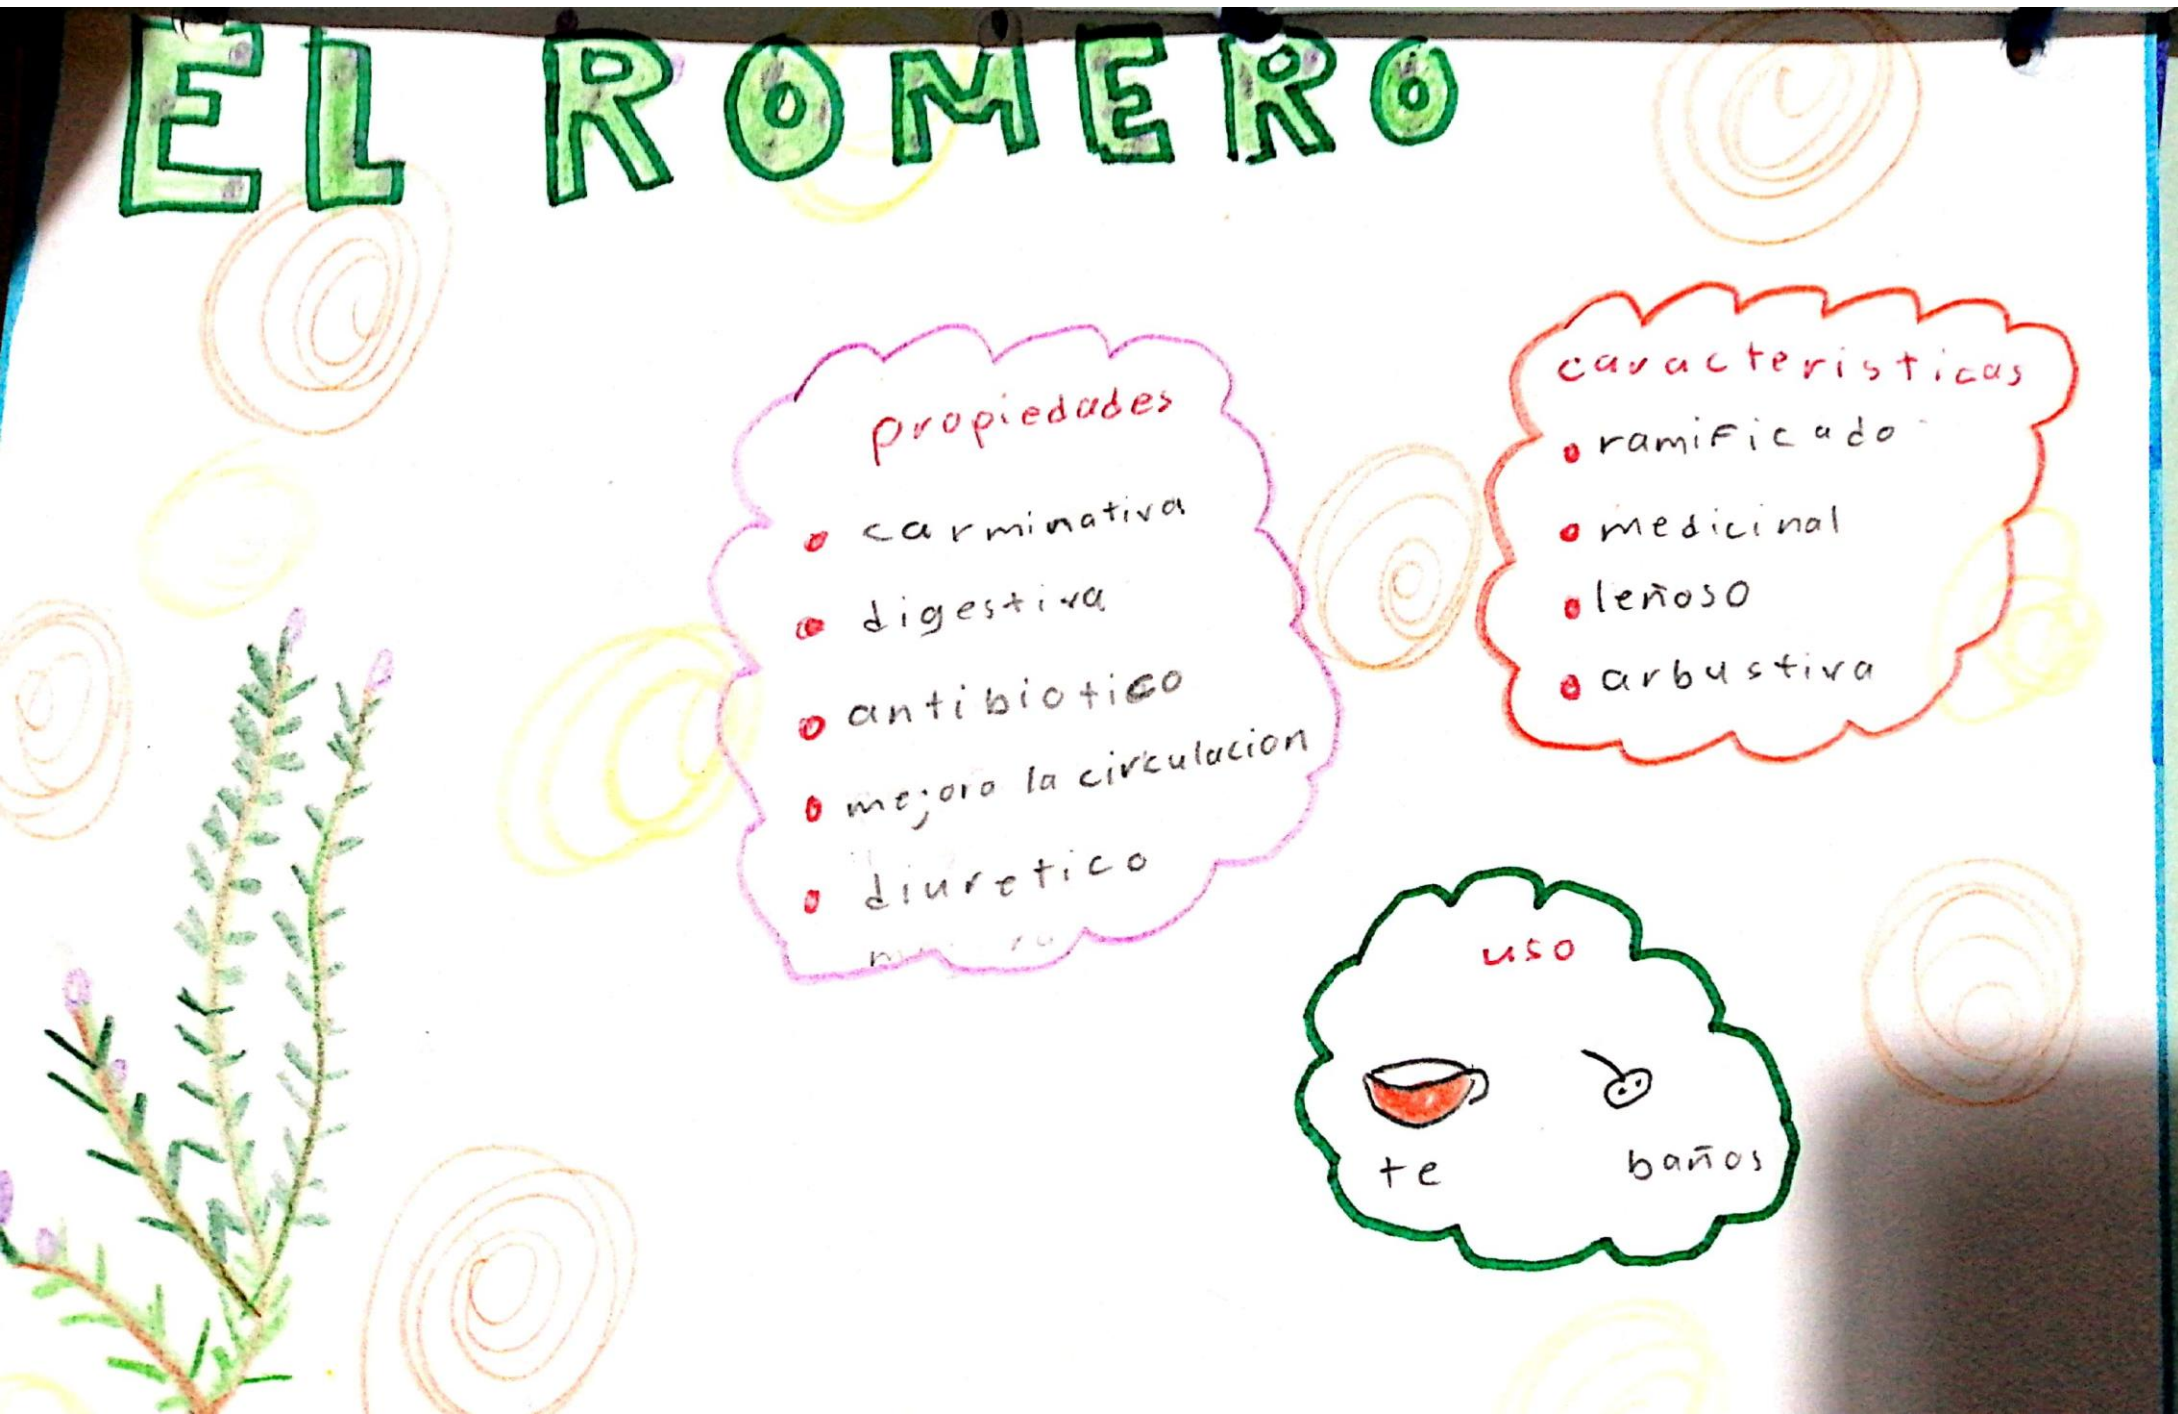 EL ROMERO
propiedades
carminativa
digestiva
antibiotico
mejora la circulacion
diuretico
caracteristicas
ramificado
medicinal
leñoso
arbustiva
uso
te
baños